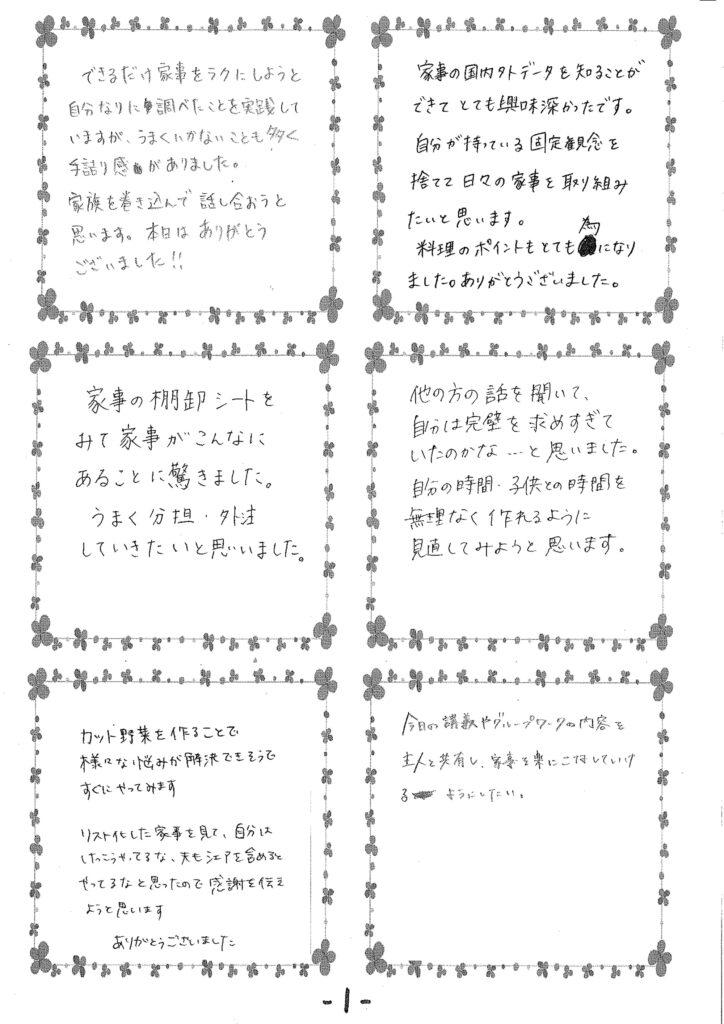 できるだけ家事をラクにしようと
自分なりに調べたことを実践して
いますが、うまくいかないことも多く
手詰り感がありました。
家族を巻き込んで話し合おうと
思います。本日はありがとう
ございました!!
家事の国内外データを知ることが
できてとても興味深かったです。
自分が持っている固定観念を
捨てて日々の家事を取り組み
たいと思います。
料理のポイントもとても為になり
ました。ありがとうございました。
家事の棚卸シートを
みて家事がこんなに
あることに驚きました。
うまく分担・外注
していきたいと思いました。
他の方の話を聞いて、
自分は完璧を求めすぎて
いたのかな…と思いました。
自分の時間・子供との時間を
無理なく作れるように
見直してみようと思います。
カット野菜を作ることで
様々な悩みが解決できそうで
すぐにやってみます
リスト化した家事を見て、自分は
けっこうやってるな、夫も
やってるなと思ったので感謝を伝え
ようと思います
ありがとうございました
今日の講義やグループワークの内容を
主人と共有し、家事を楽にこなしていけ
るようにしたい。
-1-